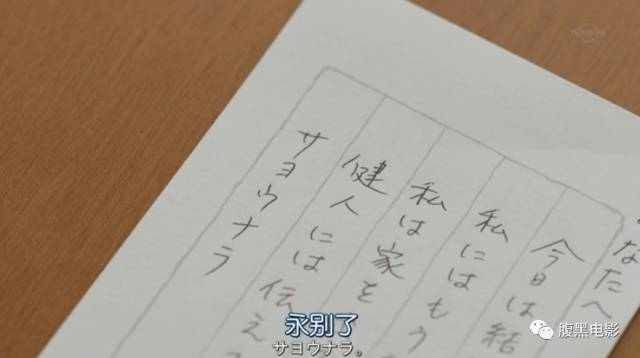 なたへ
今日は結
私にはもう
私は家を
健人には伝え
サヨウナラ
永别了
サヨウナラ。
腹黑电影